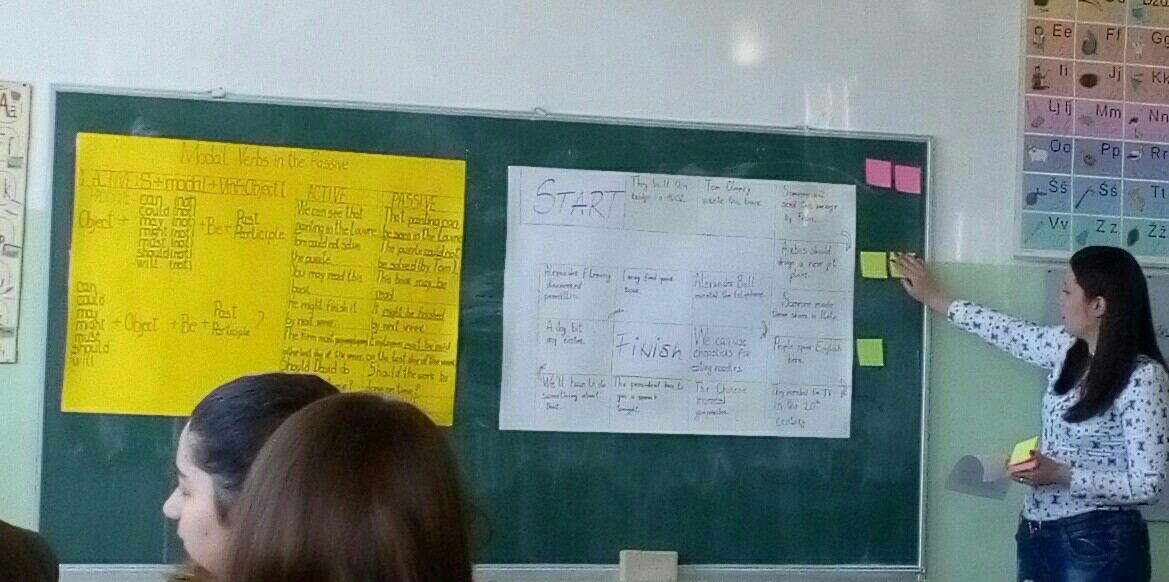 Modal Verbs in the Passive
ACTIVE: S + modal + Vinf + Object
Object + can (not) + Be + Past Participle
could (not)
may (not)
might (not)
must (not)
should (not)
will (not)
can + Object + Be + Past Participle ?
could
may
might
must
should
will
ACTIVE PASSIVE
We can see that That painting can
painting in the Louvre be seen in the Louvre
Tom could not solve The puzzle could not
the puzzle. be solved (by Tom).
You may read this This book may be
book. read.
He might finish it It might be finished
by next week. by next week.
Employees must be paid
on the last day of the week
Should David do Should the work be
done on time?
START
They built this
bridge in
Tom Clancy
wrote this book.
Someone will
send this message
by
Airbus should
design a new
plane.
Someone made
these shoes in Italy.
People speak English
here.
They invented the TV
in the 20th
century
The Chinese
invented
gunpowder.
The president has to
give a speech
tonight.
We'll have to do
something about
that.
A dog bit
my sister.
Alexander Fleming
discovered
penicillin.
I may find your
book.
Alexander Bell
invented the telephone.
We can use
chopsticks for
eating noodles.
FINISH
A a
k
Ee Ff
Ii Jj Kk
Lj lj Mm Nn
Oo Pp Rr
Šš Śś
Vv Zz Žž